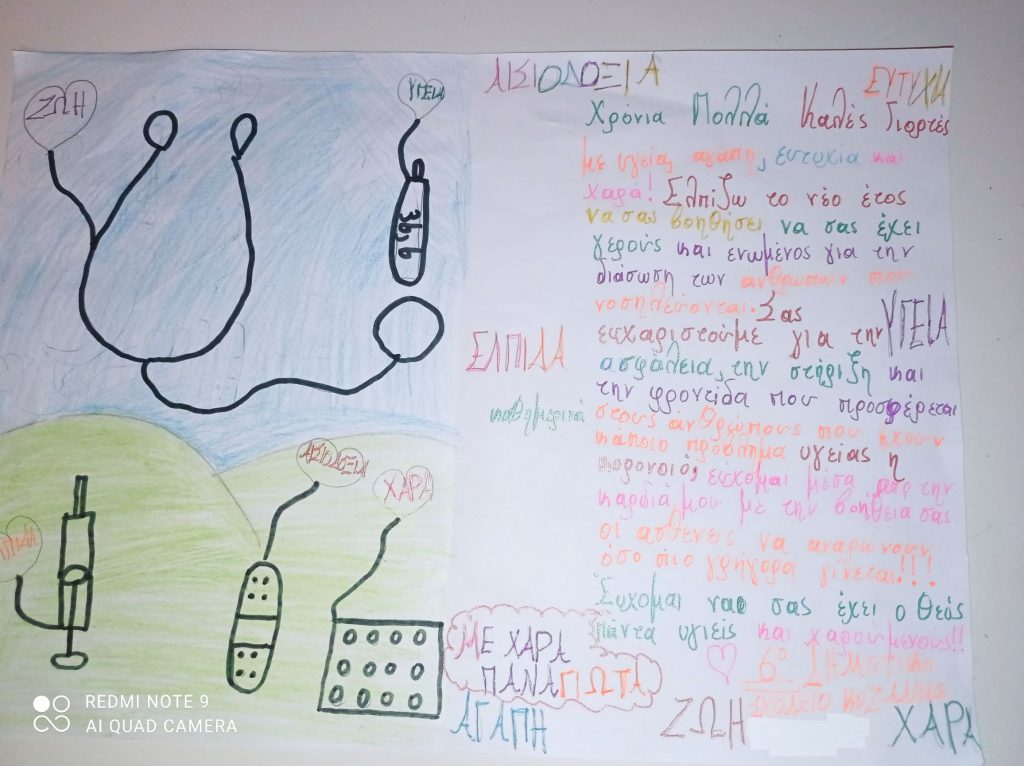 ΖΩΗ
ΥΓΕΙΑ
36,6
ΑΙΣΙΟΔΟΞΙΑ
ΧΑΡΑ
ΕΛΠΙΔΑ
ΑΙΣΙΟΔΟΞΙΑ
ΕΥΤΥΧΙΑ
Χρόνια Πολλά Καλές Γιορτές
με υγεία, αγάπη, ευτυχία και
χαρά! Ελπίζω το νέο έτος
να σας βοηθήσει να σας έχει
γερούς και ενωμένος για την
διάσωση των ανθρώπων που
νοσηλεύονται. Σας
ευχαριστούμε για την
ΥΓΕΙΑ
ΕΛΠΙΔΑ
ασφάλεια, την στήριξη και
την φροντίδα που προσφέρεται
καθημερινά
στους ανθρώπους που έχουν
κάποιο πρόβλημα υγείας ή
κορονοιό, εύχομαι μέσα απ την
καρδιά μου με την βοήθεια σας
οι ασθενείς να αναρώνουν
όσο πιο γρήγορα γίνεται!!!
Εύχομαι να σας έχει ο Θεός
πάντα υγιείς και χαρούμενους!!
ΜΕ ΧΑΡΑ
ΠΑΝΑΓΙΩΤΑ
6ο Δημοτικό
Σχολείο Κοζάνης
ΑΓΑΠΗ
ΖΩΗ
ΧΑΡΑ
REDMI NOTE 9
AI QUAD CAMERA